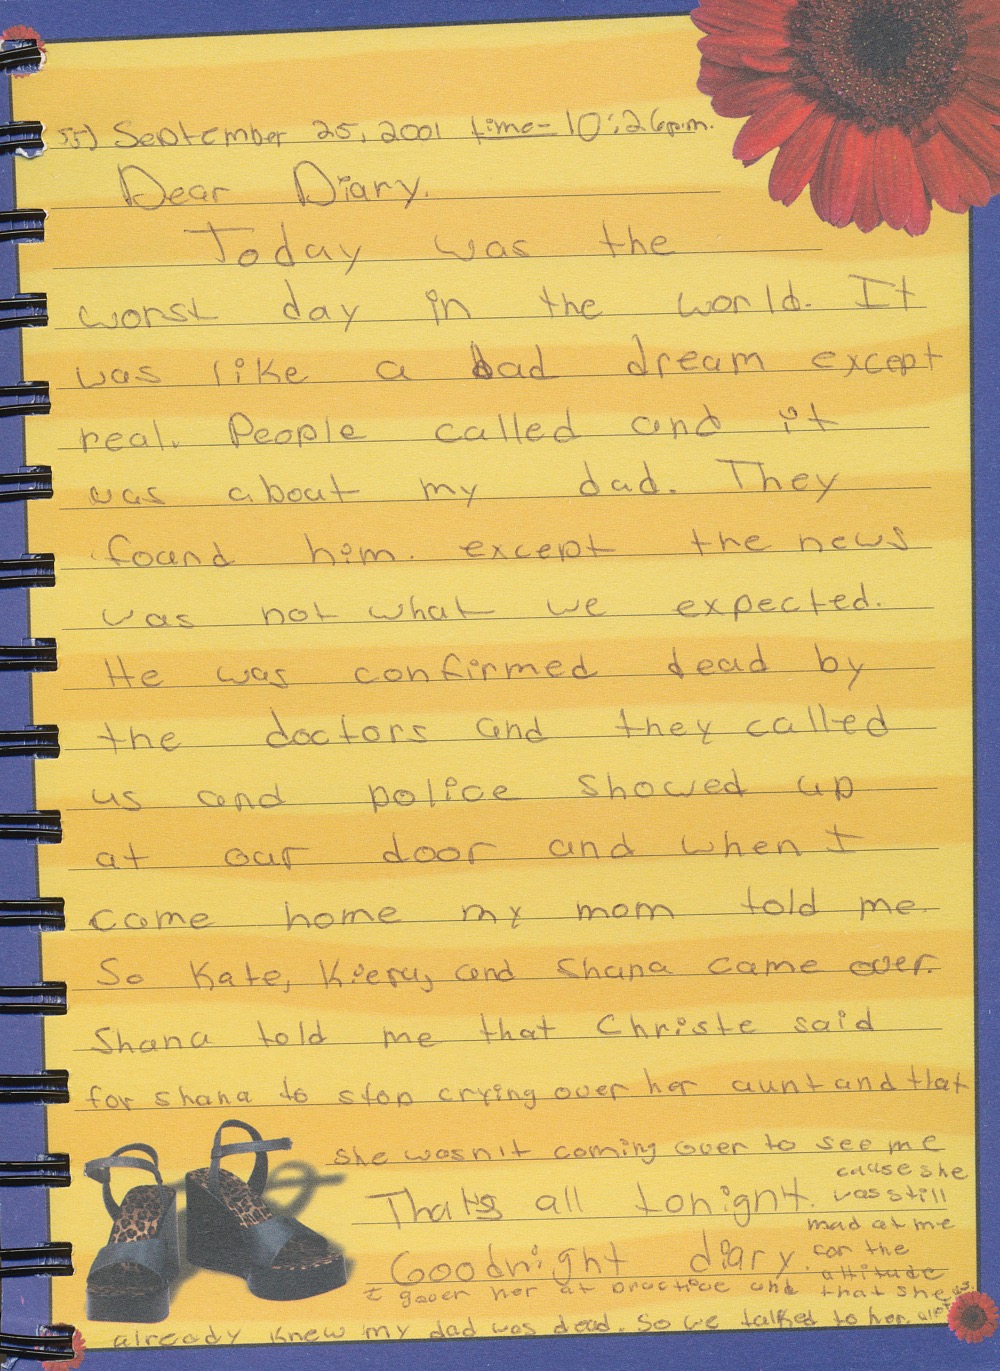 55) September 25, 2001 time- 10:26p.m.
Dear Diary.
Today was the
worst day in the world. It
was like a bad dream except
real. People called and it
was about my dad. They
found him. except the news
was not what we expected.
He was confirmed dead by
the doctors and they called
us and police showed up
at our door and when I
came home my mom told me.
So Kate, Kiera, and Shana came over.
Shana told me that Christe said
for shana to stop crying over her aunt and that
she wasn't coming over to see me
cause she
was still
mad at me
for the
attitude
I gaver her at practice and that she
already knew my dad was dead. So we talked to her.
Thats all tonight.
Goodnight diary.